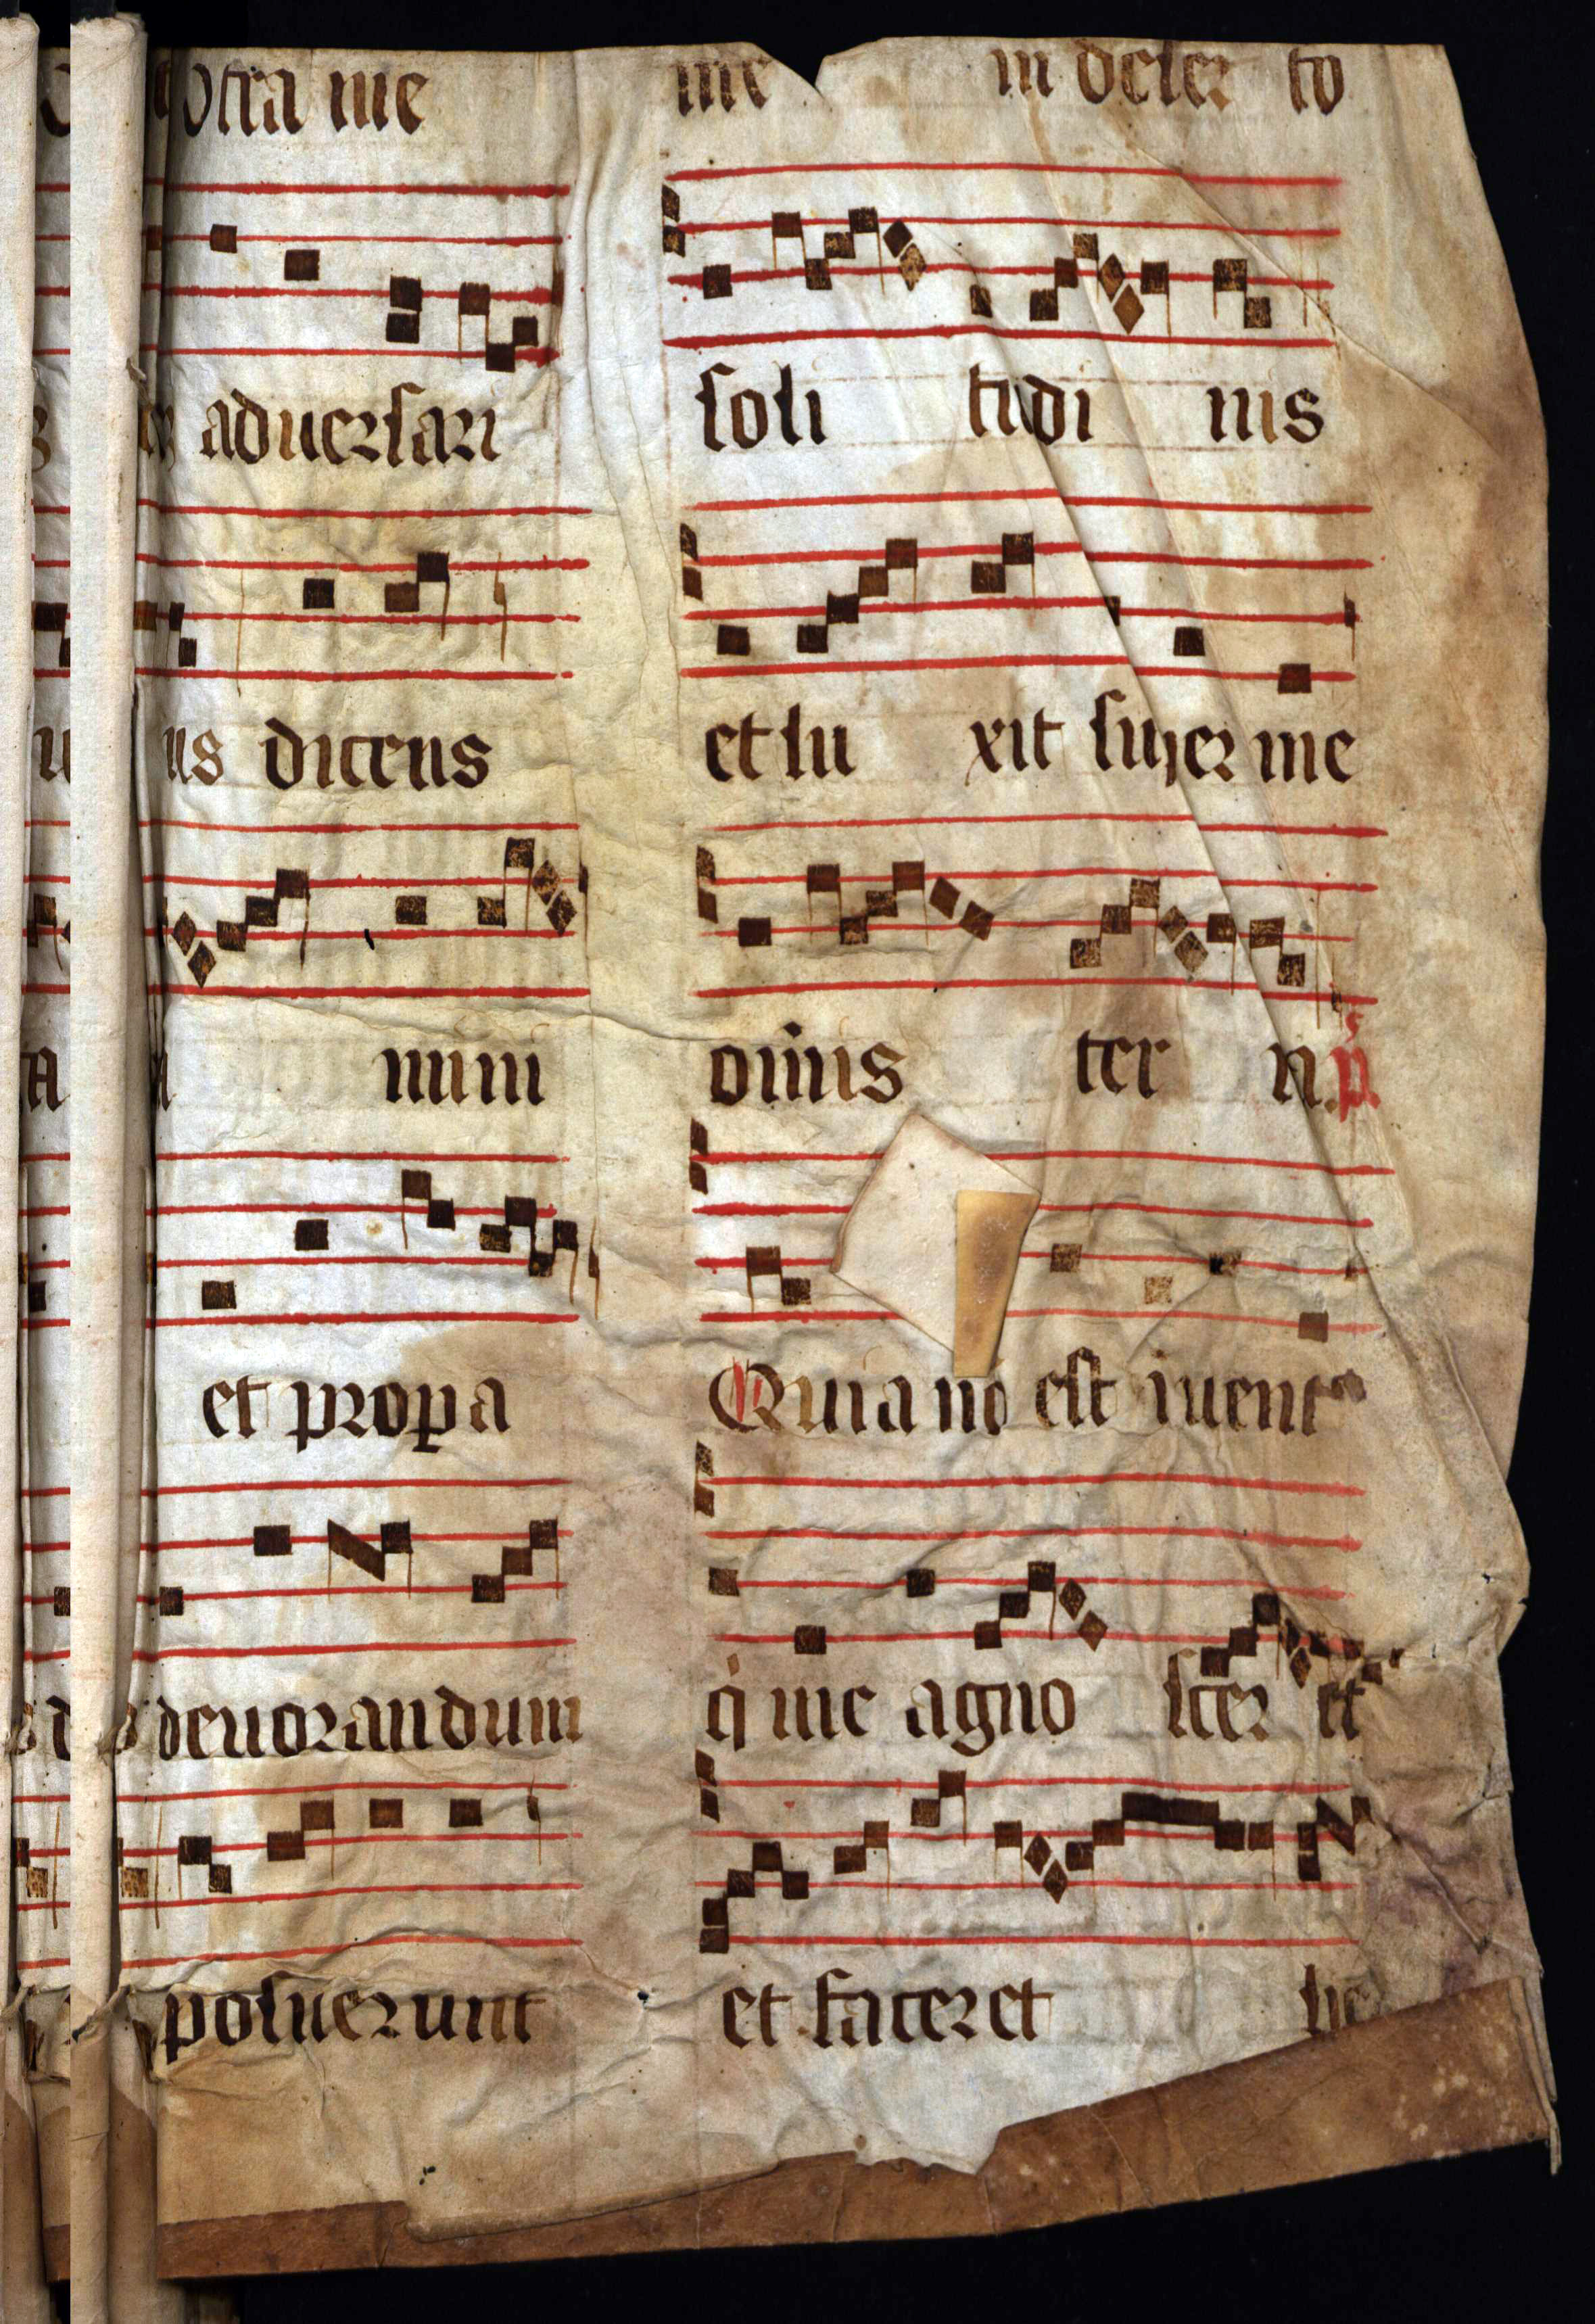 otra me
aduersari
us dicens
nimi
et propa
deuorandum
posuerunt
me in deser to
soli tudi nis
et lu xit super me
om̄is ter ra.
Quia nō est inuent
q me agno scer et
et faceret be